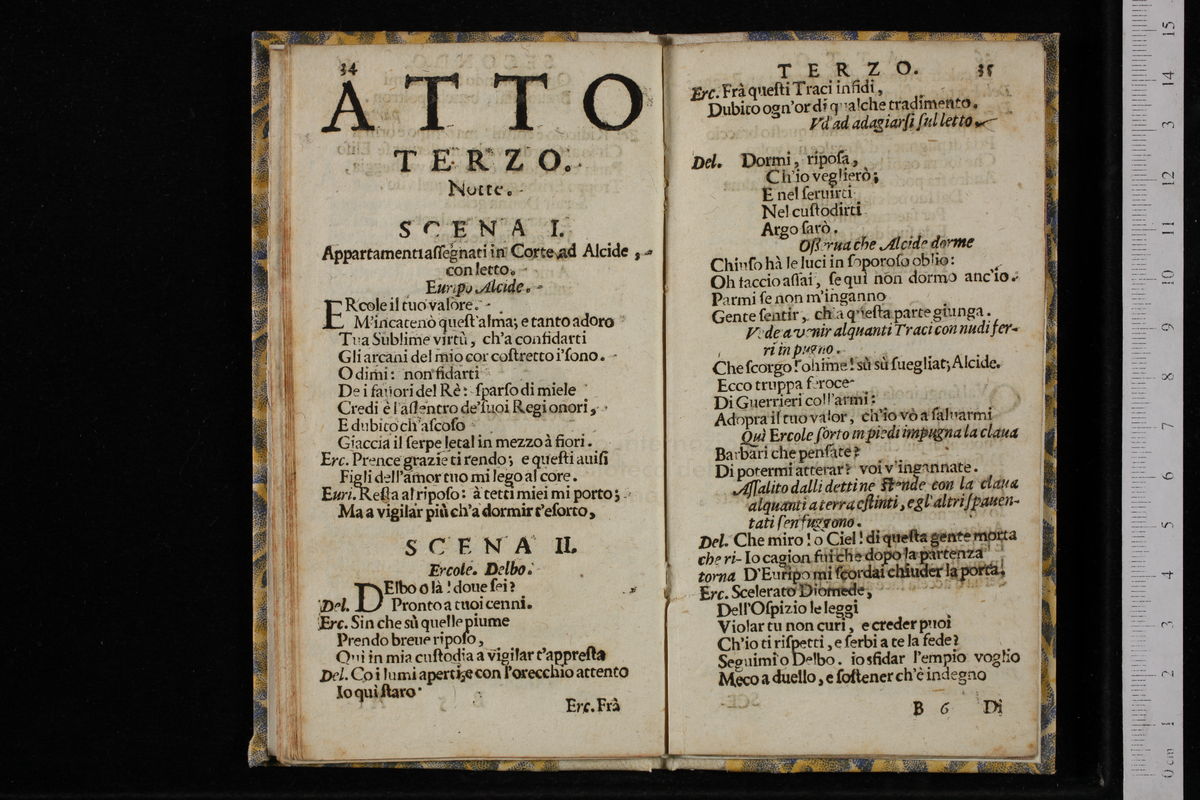 34
ATTO
TERZO.
Notte.
SCENA I.
Appartamenti assegnati in Corte ad Alcide,
con letto.
Euripo Alcide.
ERcole il tuo valore.
M'incatenò quest'alma; e tanto adoro
Tua Sublime virtù, ch'a confidarti
Gli arcani del mio cor costretto i'sono.
O dimi: non fidarti
De i fauori del Rè: sparso di miele
Credi è l'assentro de'suoi Regi onori,
E dubito ch'ascoso
Giaccia il serpe letal in mezzo à fiori.
Erc. Prence grazie ti rendo; e questi auisi
Figli dell'amor tuo mi lego al core.
Euri. Resta al riposo: à tetti miei mi porto;
Ma a vigilar più ch'a dormir t'esorto,
SCENA II.
Ercole. Delbo.
DElbo o là! doue sei?
Del. Pronto a tuoi cenni.
Erc. Sin che sù quelle piume
Prendo breue riposo,
Qui in mia custodia a vigilar t'appresta
Del. Co i lumi aperti, e con l'orecchio attento
Io quì staro
Erc. Frà
TERZO. 35
Erc. Frà questi Traci infidi,
Dubito ogn'or di qualche tradimento.
Và ad adagiarsi sul letto
Del. Dormi, riposa,
Ch'io veglierò;
E nel seruirti
Nel custodirti
Argo sarò.
Osserua che Alcide dorme
Chiuso hà le luci in soporoso oblio:
Oh taccio assai, se qui non dormo anc'io.
Parmi se non m'inganno
Gente sentir, ch'a questa parte giunga.
Vede a venir alquanti Traci con nudi fer-
ri in pugno.
Che scorgo! ohime! sù sù suegliati Alcide.
Ecco truppa feroce
Di Guerrieri coll'armi:
Adopra il tuo valor, ch'io vò a saluarmi
Quì Ercole sorto in piedi impugna la claua
Barbari che pensate?
Di potermi atterar? voi v'ingannate.
Assalito dalli detti ne stende con la claua
alquanti a terra estinti, e gl'altri spauen-
tati sen fuggono.
Del. Che miro! o Ciel! di questa gente morta
che ri- Io cagion fui che dopo la partenza
torna D'Euripo mi scordai chiuder la porta.
Erc. Scelerato Diomede,
Dell'Ospizio le leggi
Violar tu non curi, e creder puoi
Ch'io ti rispetti, e serbi a te la fede?
Seguimi o Delbo. io sfidar l'empio voglio
Meco a duello, e sostener ch'è indegno
B 6 Di